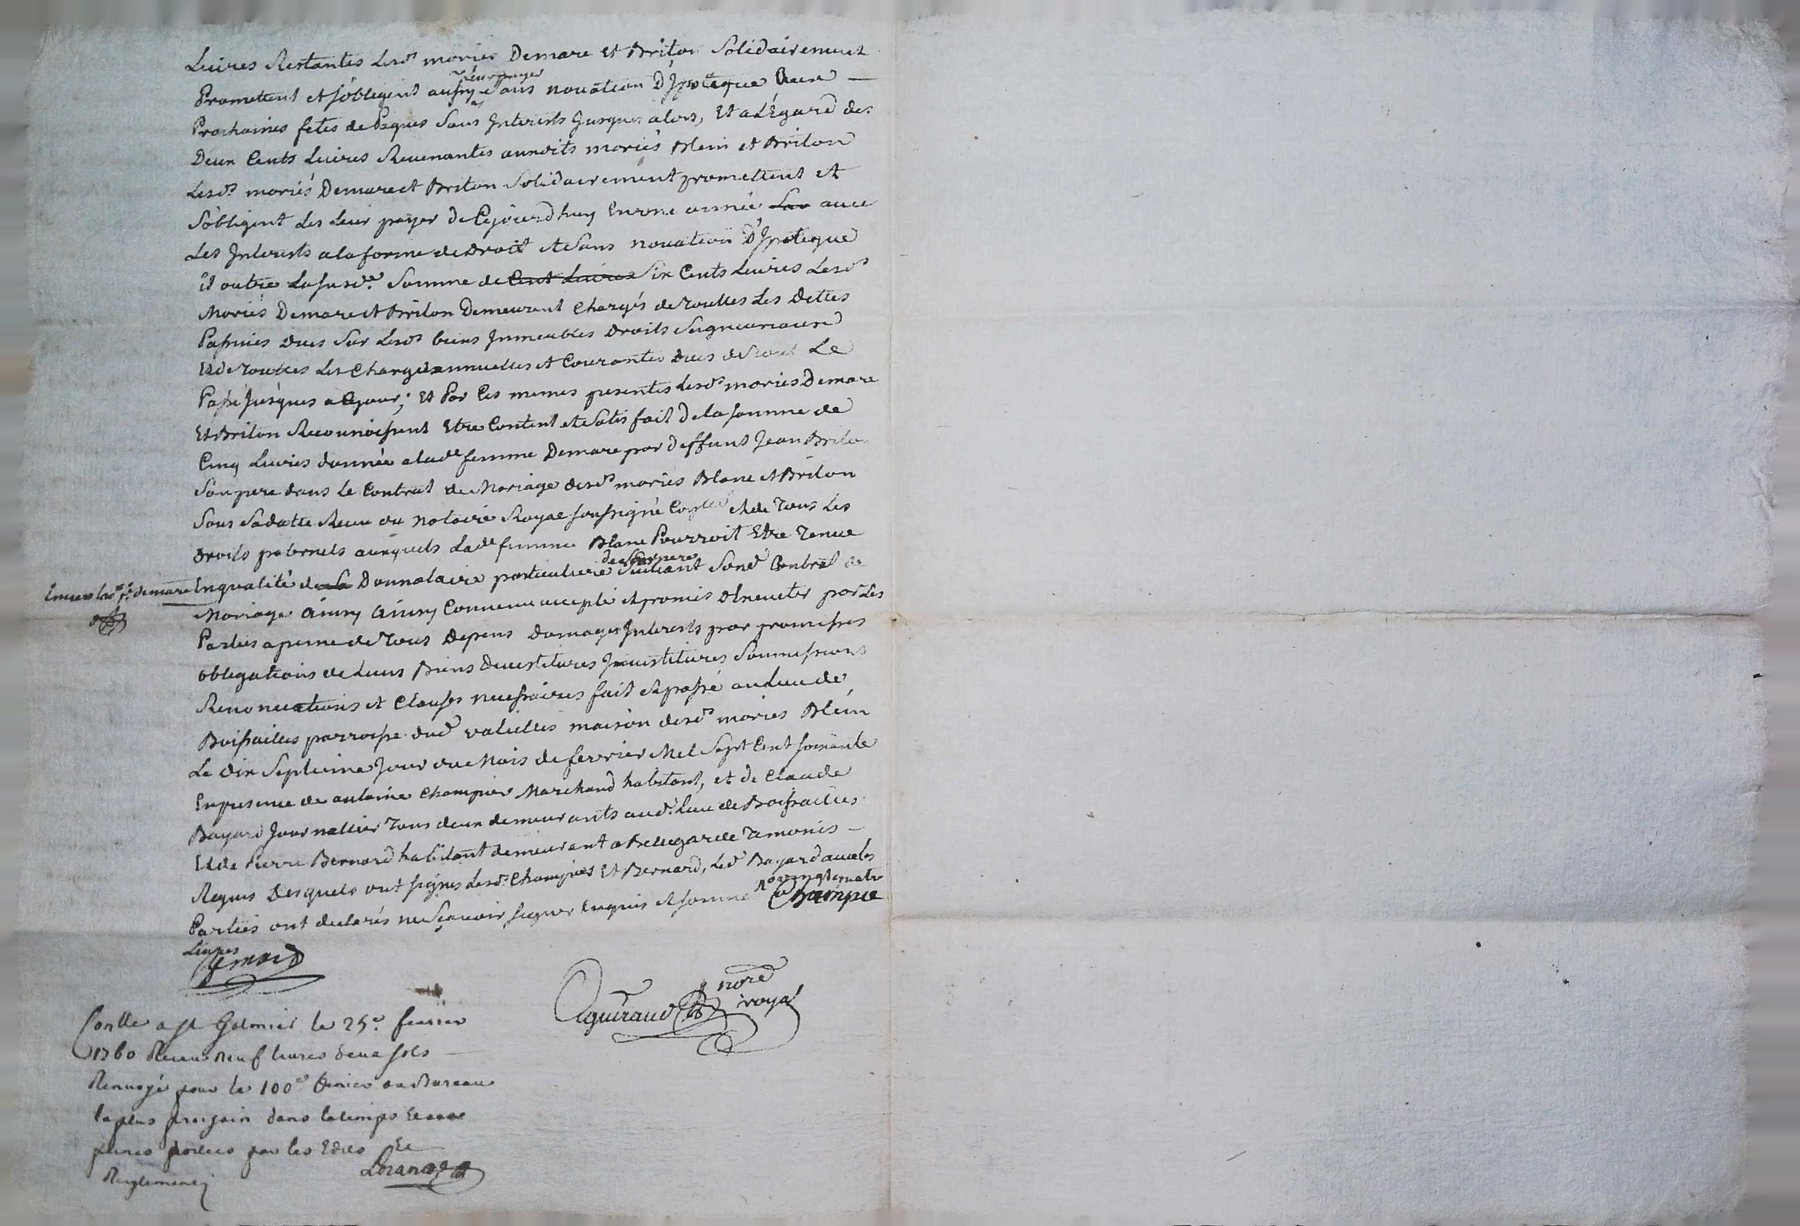 Livres Restantes Lesd.s mariés Demare et Briton Solidairement
Promettent et s'obligent aussy sans novation D'Ipoteque Aux
leur payer
Prochaines fetes de Paques Sans Interests Jusques alors, Et a L'Egard des
Deux Cents Livres Revenantes auxdits mariés Blein et Briton
Lesd.s mariés Demare et Briton Solidairement promettent et
S'obligent Les Leur payer de Cejourdhuy En une année avec
Les Interests a la forme de Droit et Sans novation D'Ipoteque
et outre La susd.e Somme de Cent Livres Six Cents Livres Lesd.s
Mariés Demare et Briton Demeurent Chargés de Touttes Les Dettes
Passives dues Sur Lesd.s biens Immeubles Droits Seigneuriaux
Et de Touttes Les Charges annuelles et Courantes dues de Tout Le
Passé Jusques a Cejour; Et Par Ces memes presentes Lesd.s mariés Demare
Et Briton Reconnoissent Etre Content et Satisfait De la somme de
Cinq Livres donnée a lad.e femme Demare par deffunt Jean Briton
Son pere dans Le Contrat de Mariage desd.s mariés Blane et Briton
Sous Sa datte Receu du notaire Royal soussigné et de Tous Les
Droits paternels auxquels Lad.e femme Blane Pourroit Etre Tenue
Envers lad.e f.e demare
En qualité de Sa Donnataire particuliere Suivant Sond. Contrat de
Mariage Ainsy Ainsy Convenu accepté et promis d'Executer par Les
Parties a peine de Tous Depens Domages Interests par promesses
obligations de Leurs Biens Devestitures Investitures Soumissions
Renonciations et Clauses necessaires fait et passé au Lieu de
Boissailles parroisse dud. maison desd.s mariés Blein
Le dix Septieme Jour du Mois de fevrier Mil Sept Cent soixante
En presence de antoine Champier Marchand habitant, et de Claude
Bayard Journallier Tous deux demeurants aud. Lieu de Boissailles
Et de Pierre Bernard habitant demeurant a Bellegarde Temoins
Requis Desquels ont signés Lesd.s Champier Et Bernard, Led. Bayard avec les
Parties ont declarés ne Sçavoir signer Enquis et sommé
Champie
Bernard
Aguiraud nore
royal
Conlle a St Galmier le 25.e fevrier
1760 Receu neuf livres deux sols
Renvoyé pour le 100.e denier au Bureau
le plus prochain dans le temps et aux
peines portées par les Edits Et
Reglements